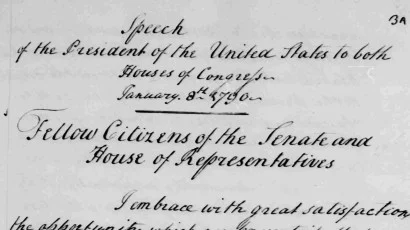 3A
Speech
of the President of the United States to both
Houses of Congress
January. 8th 1790
Fellow Citizens of the Senate and
House of Representatives
I embrace with great satisfaction
the opportunity which